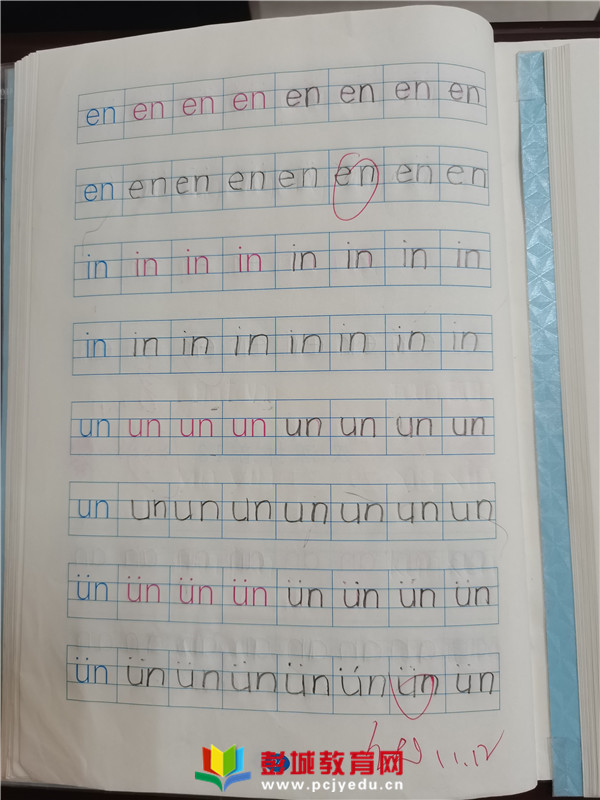 en en en en en en en en
en en en en en en en en
in in in in in in in in
in in in in in in in in
un un un un un un un un
un un un un un un un un
ün ün ün ün ün ün ün ün
ün ün ün ün ün ün ün ün
11.12
彭城教育网
www.pcjyedu.cn